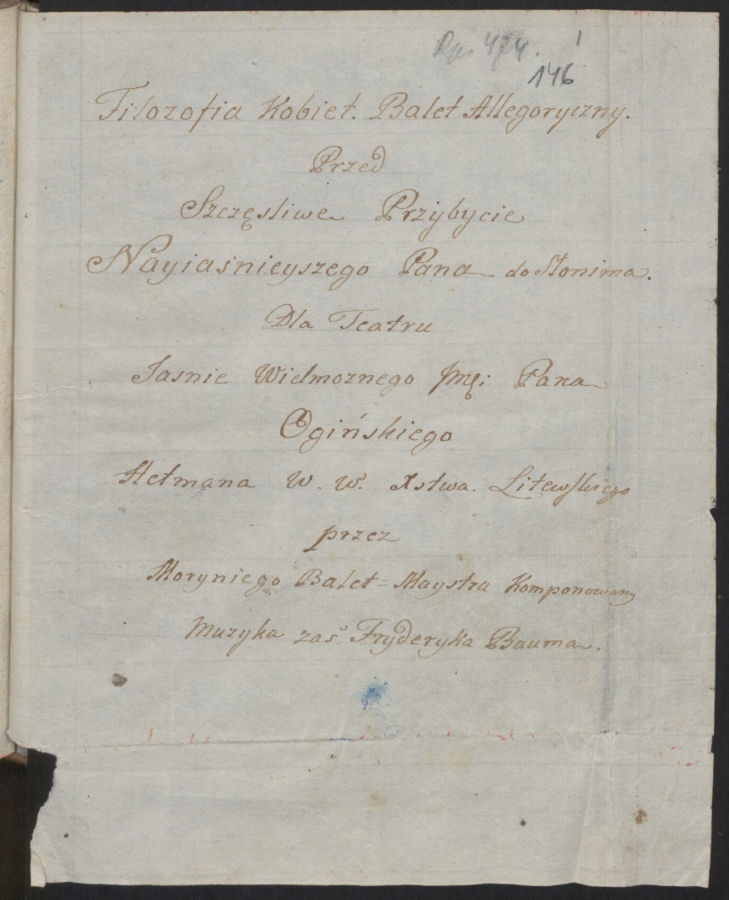 Rps 474. 1
146
Filozofia Kobiet. Balet Allegoryczny.
Przed
Szczęsliwe Przybycie
Nayiaśnieyszego Pana do Słonima.
Dla Teatru
Jasnie Wielmoznego Jmći Pana
Ogińskiego
Hetmana W. W. Xstwa. Litewskiego
przez
Moryniego Balet=Maystra Komponowany
Muzyka zaś Fryderyka Bauma.